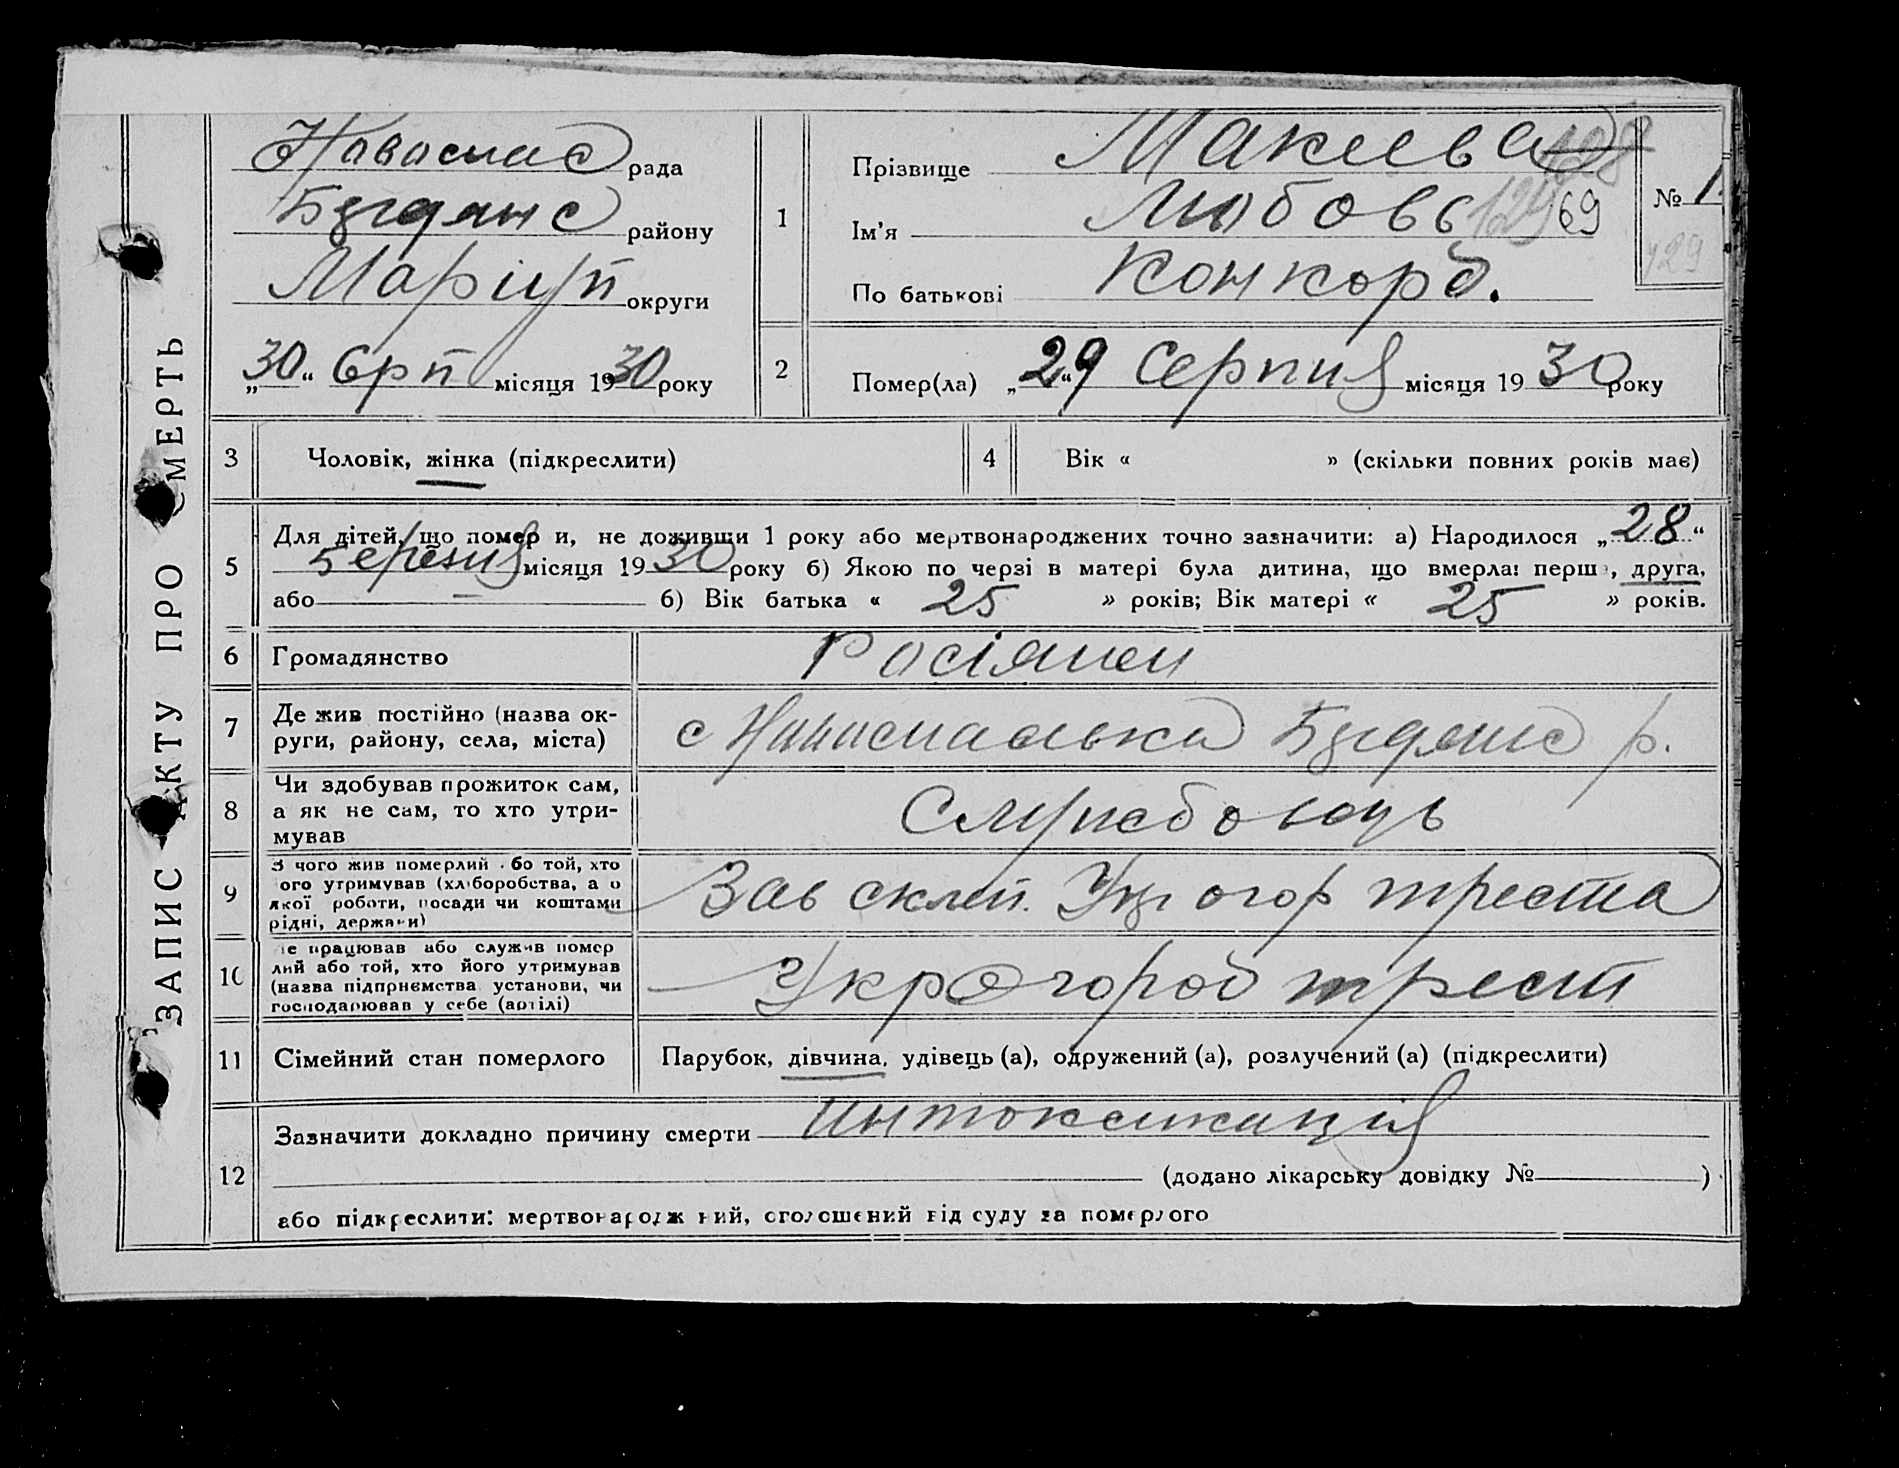 ЗАПИС АКТУ ПРО СМЕРТЬ
Новоспас рада
району
Маріуп округи
„30“ Серп місяця 1930 року
1
Прізвище Макеева
128
Ім'я Любовь 129 69
По батькові Конкорд.
№ 1
129
2
Помер(ла) „29“ Серпня місяця 1930 року
3 Чоловік, жінка (підкреслити)
4 Вік « » (скільки повних років має)
5 Для дітей, що помер и, не доживши 1 року або мертвонароджених точно зазначити: а) Народилося „28“
березня місяця 1930 року б) Якою по черзі в матері була дитина, що вмерла: перша, друга,
або б) Вік батька « 25 » років; Вік матері « 25 » років.
6 Громадянство Росіянеи
7 Де жив постійно (назва ок-
руги, району, села, міста) с р.
8 Чи здобував прожиток сам,
а як не сам, то хто утри-
мував
Службовець
9 З чого жив померлий або той, хто
його утримував (хліборобства, а о
якої роботи, посади чи коштами
рідні, держави)
Зав склеп. огор треста
10 Де працював або служив помер
лий або той, хто його утримував
(назва підприємства установи, чи
господарював у себе (артілі)
Укрогород трест
11 Сімейний стан померлого Парубок, дівчина, удівець (а), одружений (а), розлучений (а) (підкреслити)
12 Зазначити докладно причину смерти интоксикація
(додано лікарську довідку № )
або підкреслити: мертвонароджений, оголошений від суду за померлого